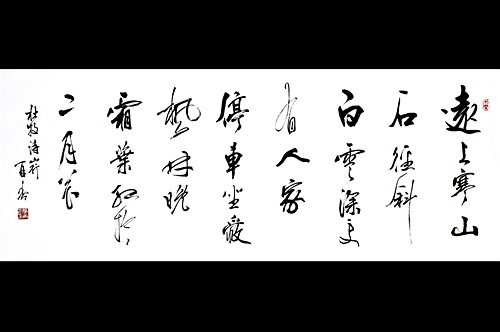 遠上寒山
石徑斜
白雲深處
有人家
停車坐愛
楓林晚
霜葉紅於
二月花
杜牧詩